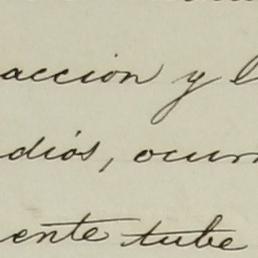 accion y l
diós, ocurr
ente tube